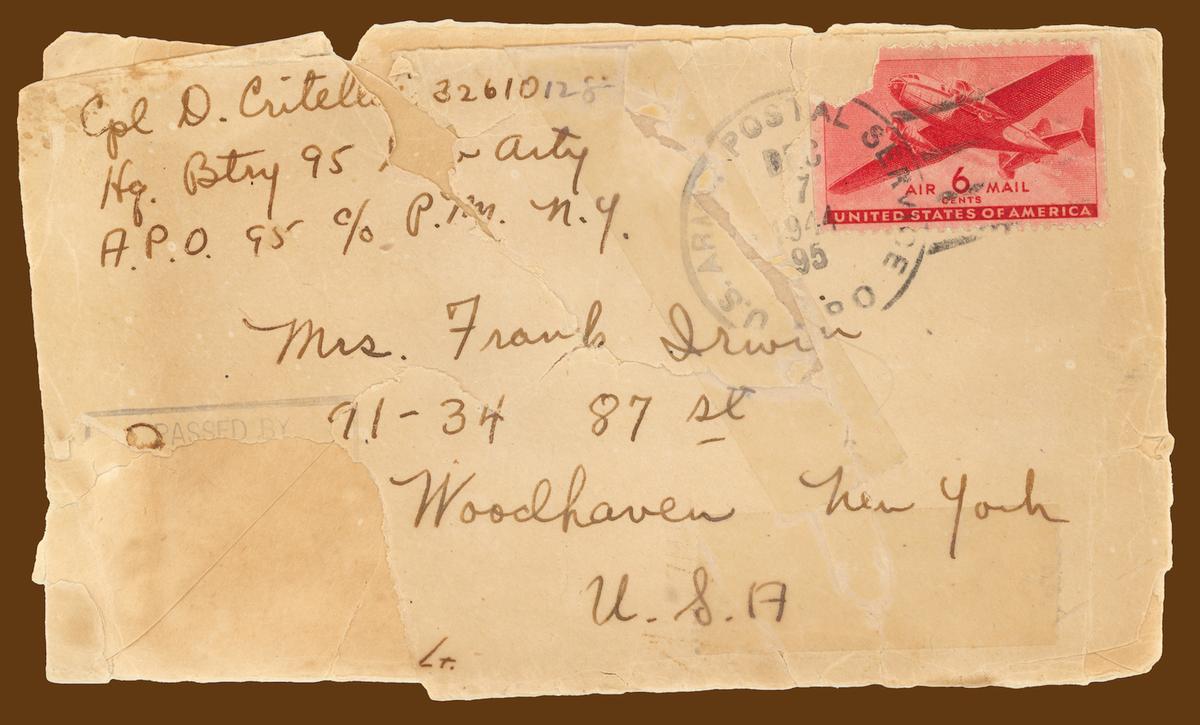 Cpl D. Critell 32610128
Hq. Btry 95 Arty
A.P.O. 95 c/o P.M. N.Y.
U.S. ARMY POSTAL SERVICE
DEC
7
1944
95
AIR 6 MAIL
CENTS
UNITED STATES OF AMERICA
Mrs. Frank Irwin
91-34 87 st
PASSED BY
Woodhaven New York
U. S. A
Lt.